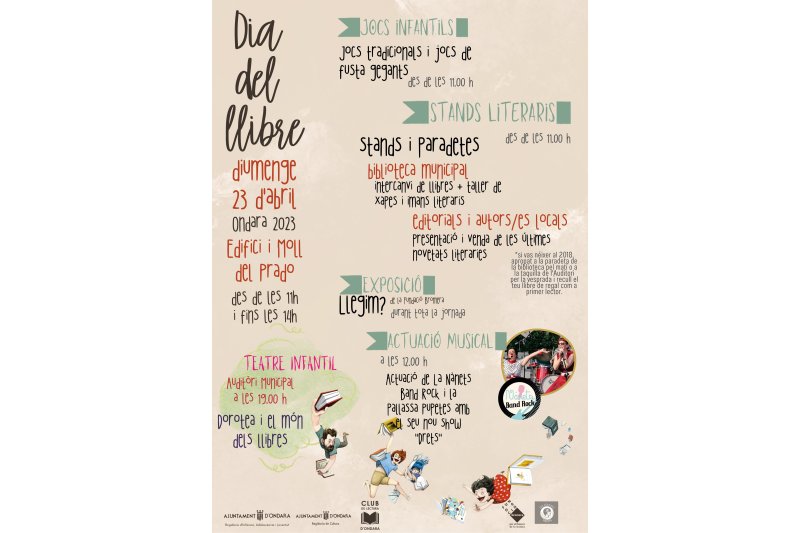 Dia
del
llibre
diumenge
23 d'abril
Ondara 2023
Edifici i Moll
del Prado
des de les 11h
i fins les 14h
TEATRE INFANTIL
Auditori Municipal
a les 19.00 h
Dorotea i el món
dels llibres
JOCS INFANTILS
Jocs tradicionals i jocs de
fusta gegants
des de les 11.00 h
STANDS LITERARIS
des de les 11.00 h
Stands i paradetes
biblioteca municipal
intercanvi de llibres + taller de
xapes i imans literaris
editorials i autors/es locals
presentació i venda de les últimes
novetats literaries
"si vas néixer al 2018,
apropat a la paradeta de
la biblioteca pel matí o a
la taquilla de l'Auditori
per la vesprada i recull el
teu llibre de regal com a
primer lector.
EXPOSICIÓ
Llegim?
de la Fundació Bromera
durant tota la jornada
ACTUACIÓ MUSICAL
a les 12.00 h
Actuació de la Nànets
Band Rock i la
pallassa Pupetes amb
el seu nou show
"Drets"
Band Rock
AJUNTAMENT D'ONDARA
AJUNTAMENT D'ONDARA
Regidoria de Cultura
CLUB
DE LECTURA
D'ONDARA